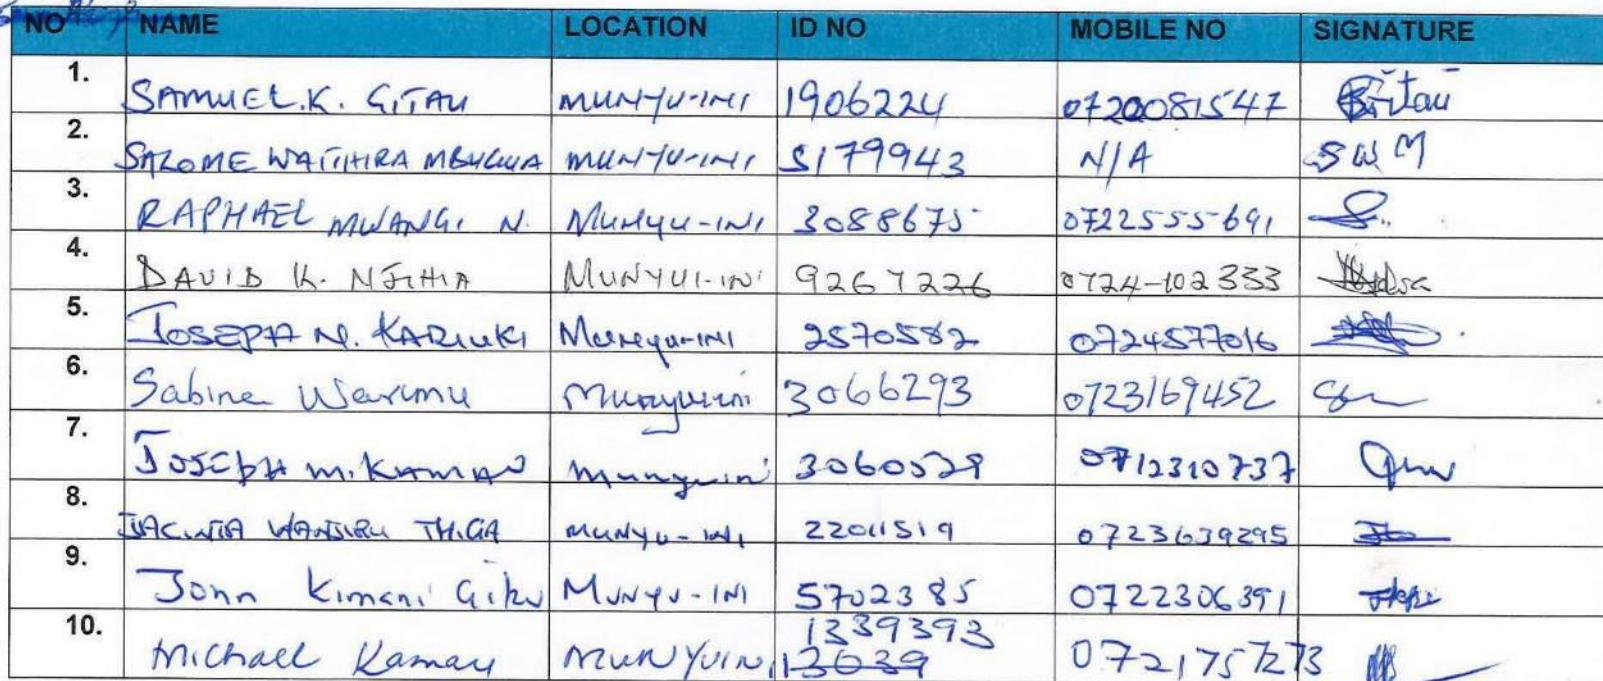 NO NAME LOCATION ID NO MOBILE NO SIGNATURE
1. SAMUEL.K. GITAU MUNYU-INI 1906224 0720081547 Gitau
2. SALOME WAITHIRA MBUGUA MUNYU-INI 5179943 N/A S W M
3. RAPHAEL MWANGI N. MUNYU-INI 3088675 0722555691
4. DAVID K. NJIHIA MUNYUI-INI 9267226 0724-102333
5. JOSEPH N. KARIUKI Munyu-INI 2570582 0724577016
6. Sabina Warimu Munyuini 3066293 0723169452
7. JOSEPH M. KAMAU Munyuini 3060529 0712310737
8. JACINTA WANJIRU THIGA MUNYU-INI 22011519 0723639295
9. John Kimani Giku MUNYU-INI 5702385 0722306391
1339393
10. Michael Kamau MUNYUINI 13039 0721757273